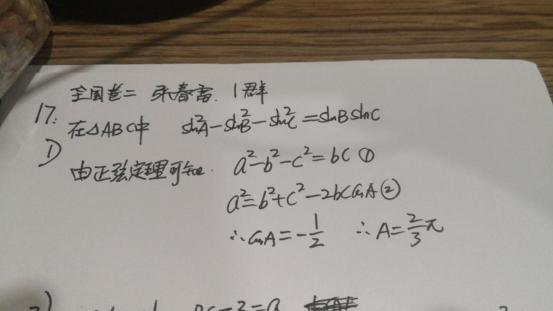 全国卷二 张春雷. 1群
17. 在△ABC中 sin²A-sin²B-sin²C=sinBsinC
① 由正弦定理可知. a²-b²-c²=bc ①
a²=b²+c²-2bccosA②
∴cosA=-1/2 ∴A=2/3π